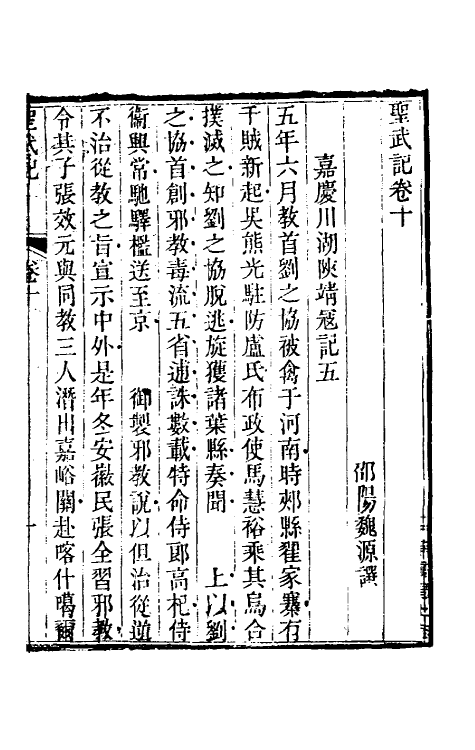 聖武記卷十
邵陽魏源譔
嘉慶川湖陝靖寇記五
五年六月教首劉之協被禽于河南時郟縣翟家寨有
千賊新起吳熊光駐防盧氏布政使馬慧裕乘其烏合
撲滅之知劉之協脫逃旋獲諸葉縣奏聞　上以劉
之協首創邪教毒流五省逋誅數載特命侍郎高杞侍
衞興常馳驛檻送至京　御製邪教說以但治從逆
不治從教之旨宣示中外是年冬安徽民張全習邪教
令其子張效元與同教三人潛出嘉峪關赴喀什噶爾
聖武記
卷十
一